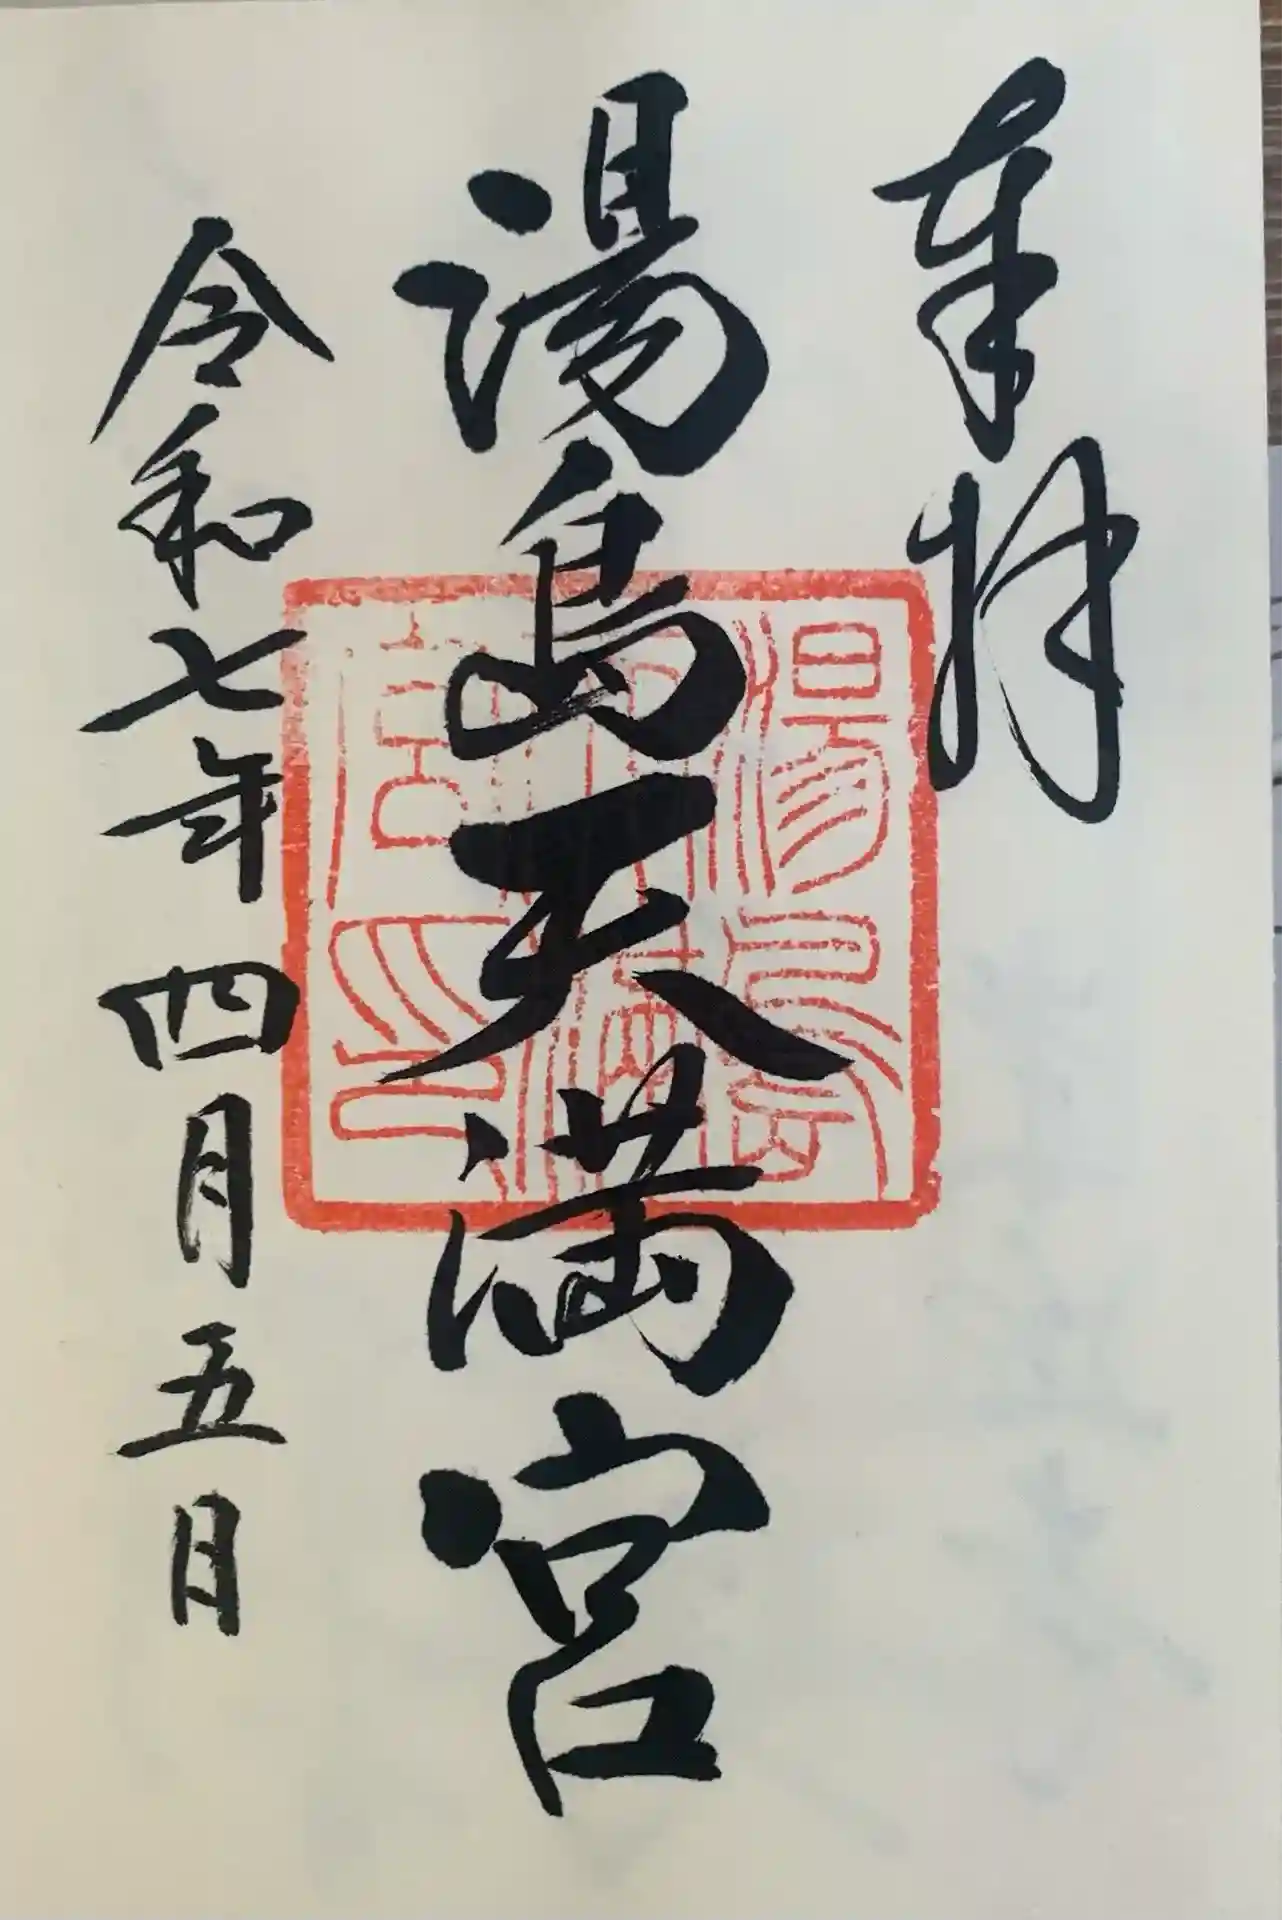 奉拝
湯島天満宮
令和七年四月五日
湯島天満宮印